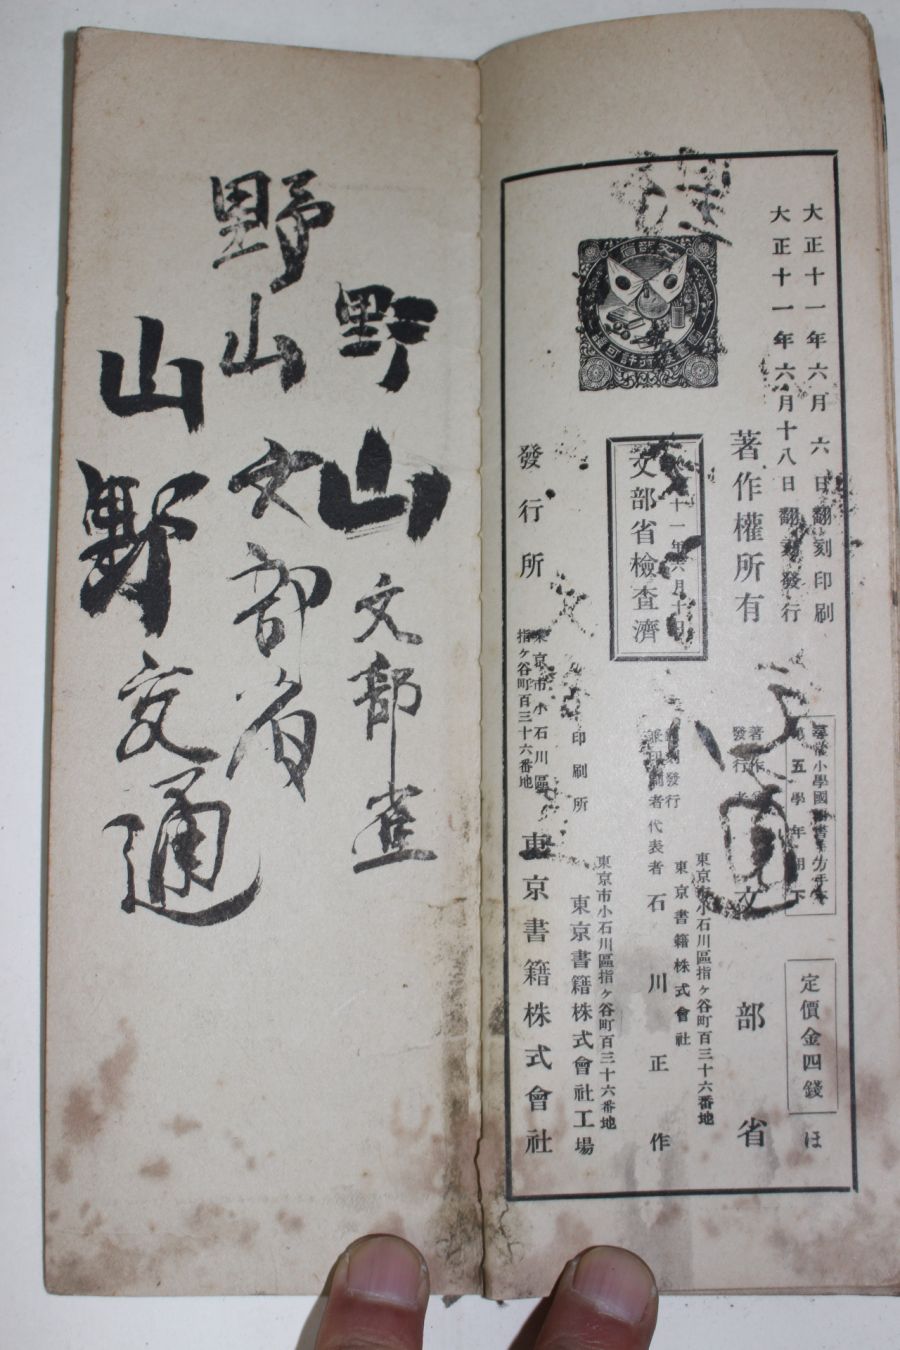 大正十一年六月六日翻刻印刷
大正十一年六月十八日翻刻發行
著作權所有
文部省檢查濟
定價金四錢
ほ
第五學年用下
文部省
東京市小石川區指ヶ谷町百三十六番地
東京書籍株式會社
代表者 石川正作
印刷所
東京市小石川區指ヶ谷町百三十六番地
東京書籍株式會社工場
發行所
東京市小石川區
指ヶ谷町百三十六番地
東京書籍株式會社
野山文部查
野山文部省
山野交通